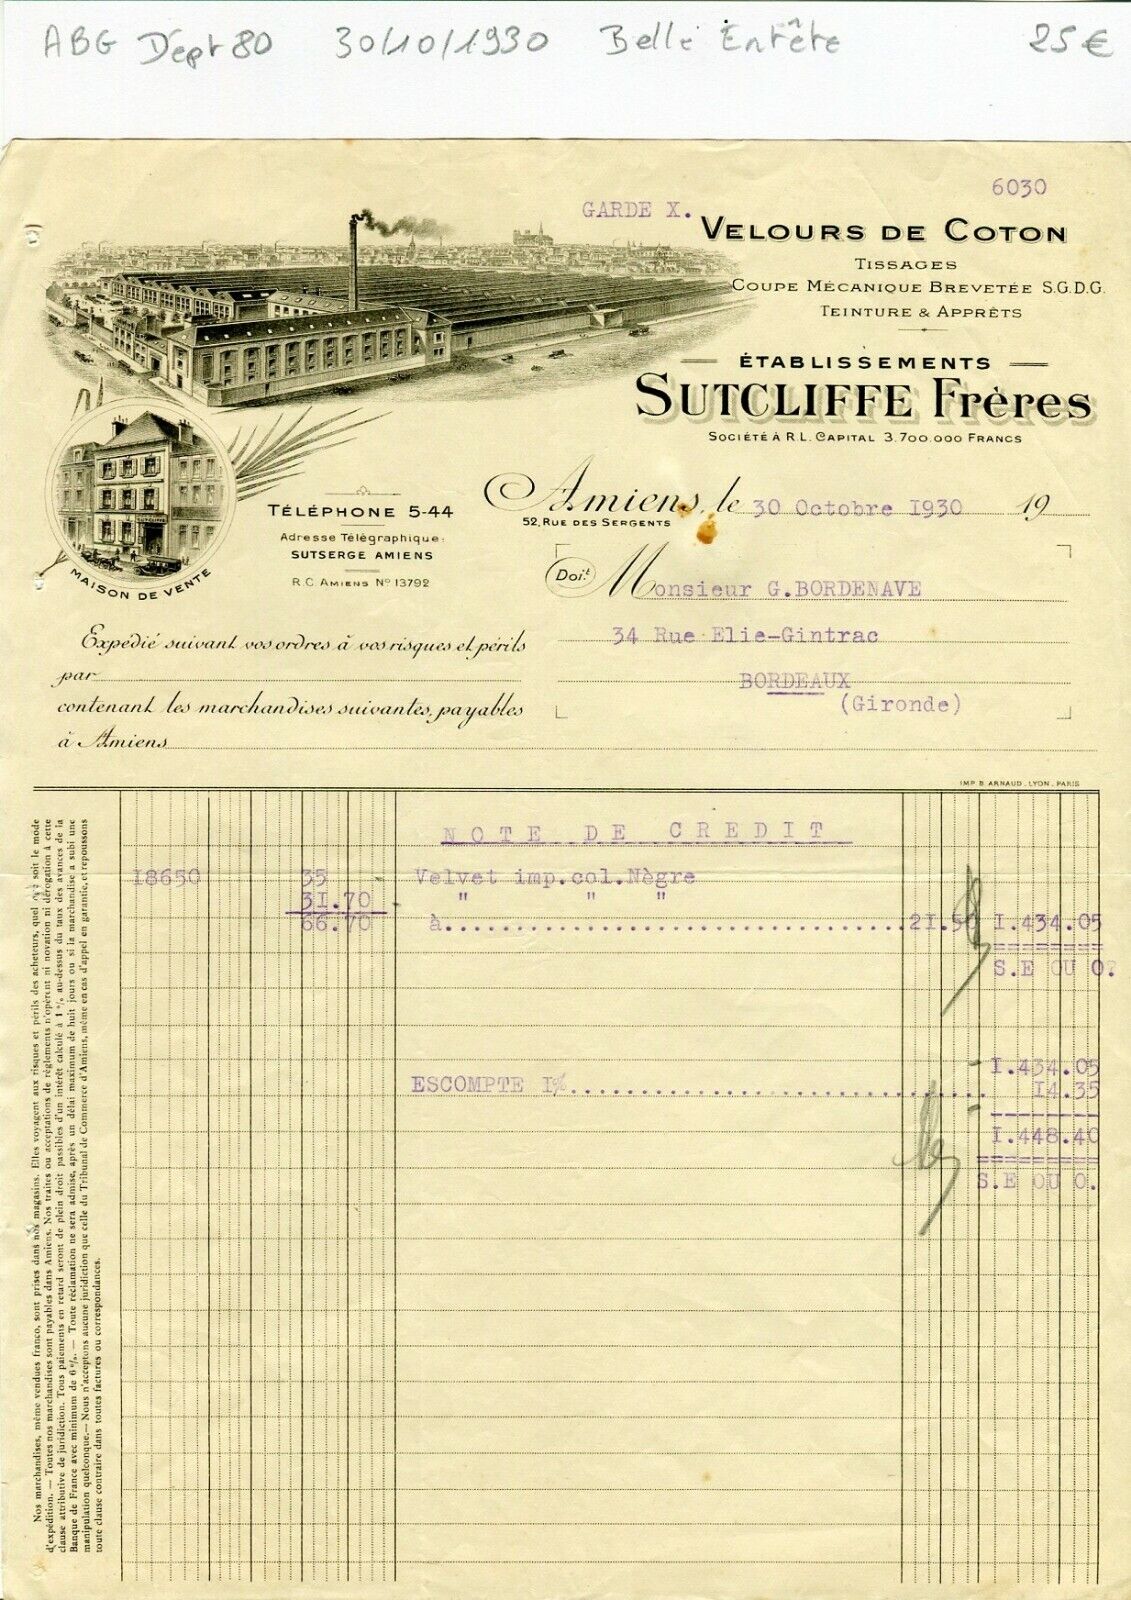 ABG Dépt 80 30/10/1930 Belle Entête 25 €
6030
GARDE X.
VELOURS DE COTON
TISSAGES
COUPE MÉCANIQUE BREVETÉE S.G.D.G.
TEINTURE & APPRÊTS
ÉTABLISSEMENTS
SUTCLIFFE Frères
SOCIÉTÉ À R.L. CAPITAL 3.700.000 FRANCS
SUTCLIFFE
MAISON DE VENTE
TÉLÉPHONE 5-44
Adresse Télégraphique:
SUTSERGE AMIENS
R.C. AMIENS Nº 13792
Amiens, le 30 Octobre 1930 19
52, RUE DES SERGENTS
Doit Monsieur G.BORDENAVE
34 Rue Elie-Gintrac
BORDEAUX
(Gironde)
Expédié suivant vos ordres à vos risques et périls
par
contenant les marchandises suivantes, payables
à Amiens
IMP. B. ARNAUD. LYON. PARIS
NOTE DE CREDIT
18650 35 Velvet imp.col.Nègre
31.70 " " "
66.70 à.................................21.50 1.434.05
S.E OU O.
1.434.05
ESCOMPTE 1%.............................. 14.35
1.448.40
S.E OU O.
Nos marchandises, même vendues franco, sont prises dans nos magasins. Elles voyagent aux risques et périls des acheteurs, quel que soit le mode
d'expédition. — Toutes nos marchandises sont payables dans Amiens. Nos traites ou acceptations de règlements n'opèrent ni novation ni dérogation à cette
clause attributive de juridiction. Tous paiements en retard seront de plein droit passibles d'un intérêt calculé à 1 % au-dessus du taux des avances de la
Banque de France avec minimum de 6 %. — Toute réclamation ne sera admise, après un délai maximum de huit jours ou si la marchandise a subi une
manipulation quelconque. — Nous n'acceptons aucune juridiction que celle du Tribunal de Commerce d'Amiens, même en cas d'appel en garantie, et repoussons
toute clause contraire dans toutes factures ou correspondances.